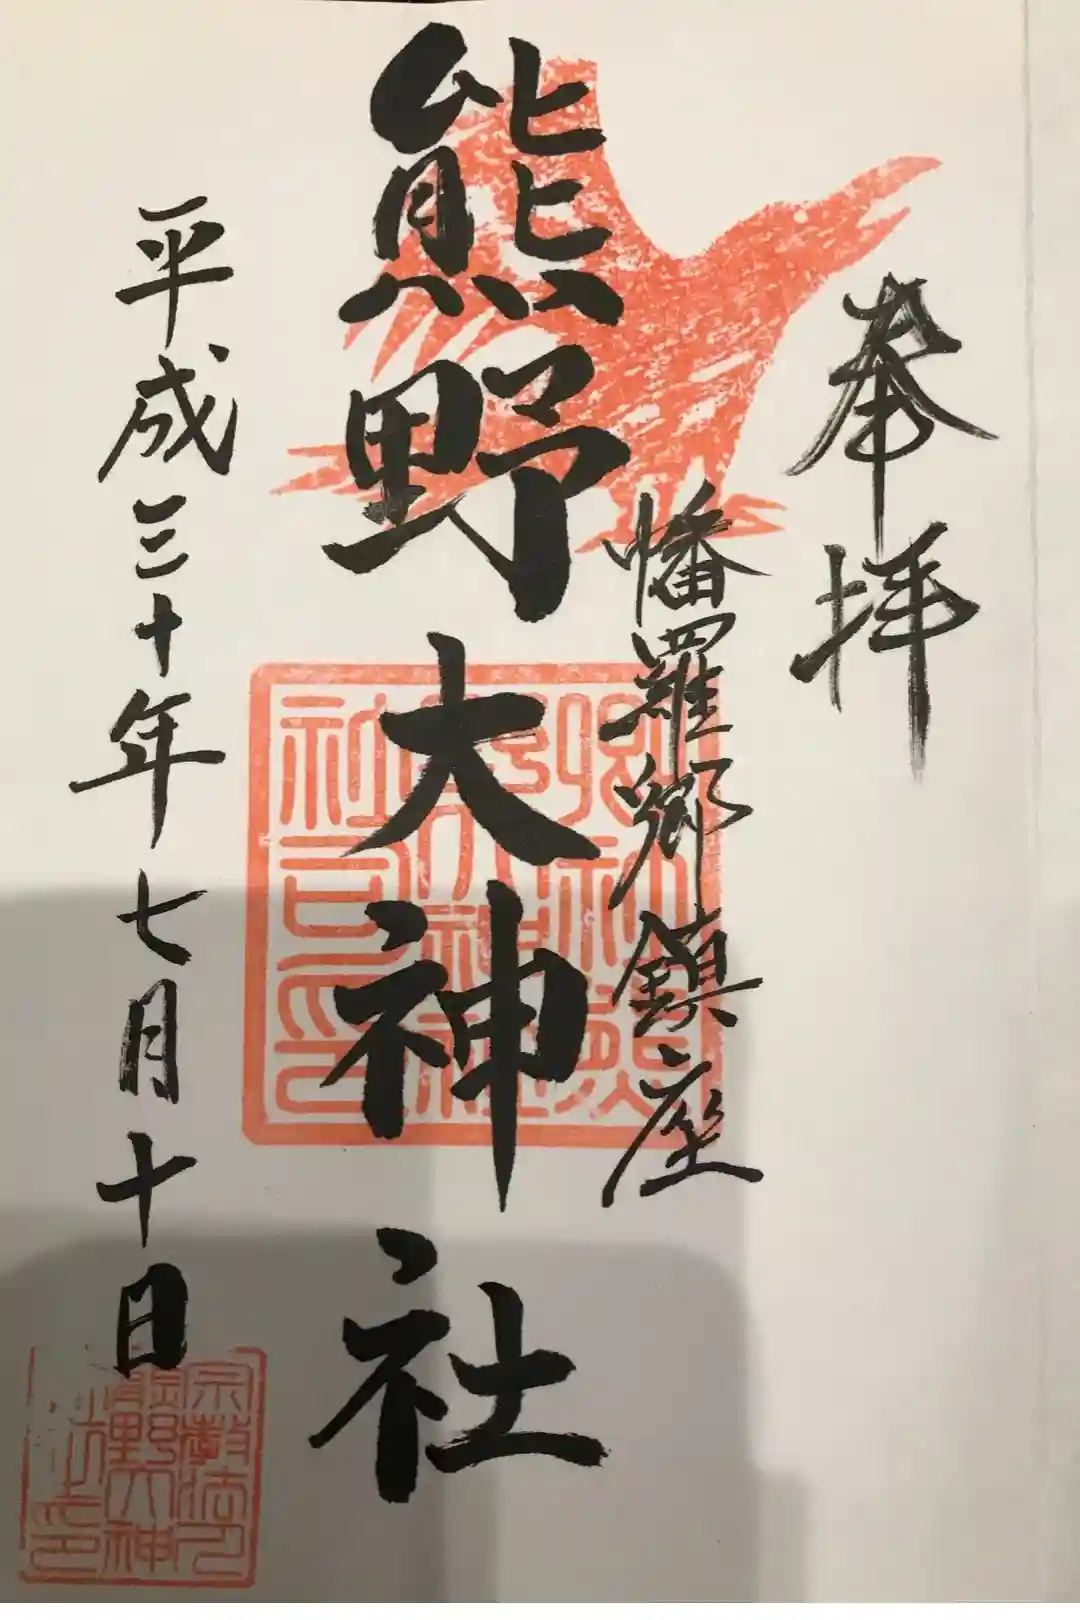 奉拝
幡羅郷鎮座
熊野大神社
平成三十年七月十日